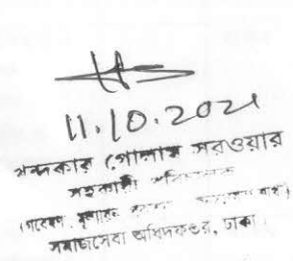 11.10.2021
খন্দকার গোলাম সরওয়ার
সহকারী পরিচালক
(গবেষণা, মূল্যায়ন
সমাজসেবা অধিদফতর, ঢাকা।